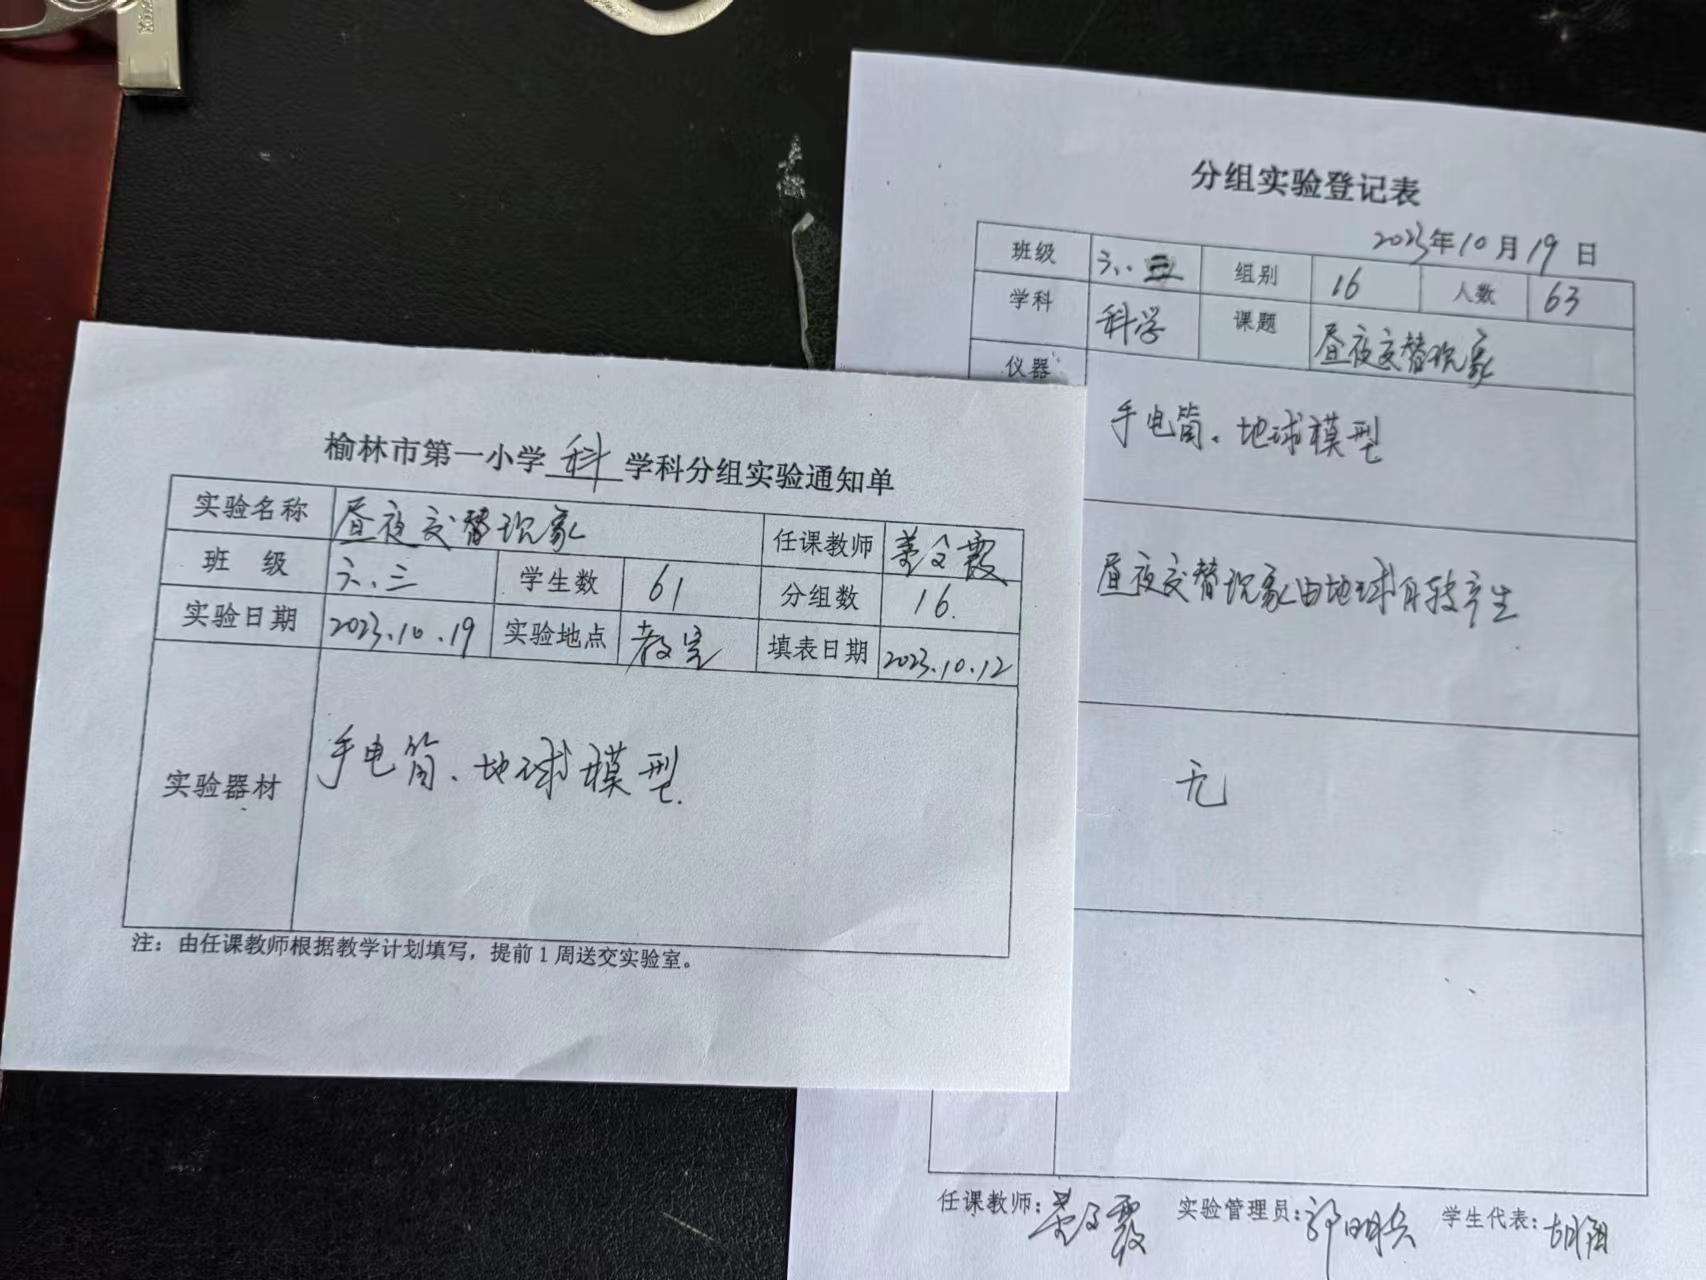 榆林市第一小学 科 学科分组实验通知单
实验名称 昼夜交替现象 任课教师 姜文霞
班 级 六.三 学生数 61 分组数 16.
实验日期 2023.10.19 实验地点 教室 填表日期 2023.10.12
实验器材 手电筒、地球模型.
注：由任课教师根据教学计划填写，提前1周送交实验室。
分组实验登记表
2023年10月19日
班级 六.三 组别 16 人数 63
学科 科学 课题 昼夜交替现象
仪器 手电筒、地球模型
昼夜交替现象由地球自转产生
无
任课教师: 姜文霞 实验管理员: 郭明兵 学生代表: